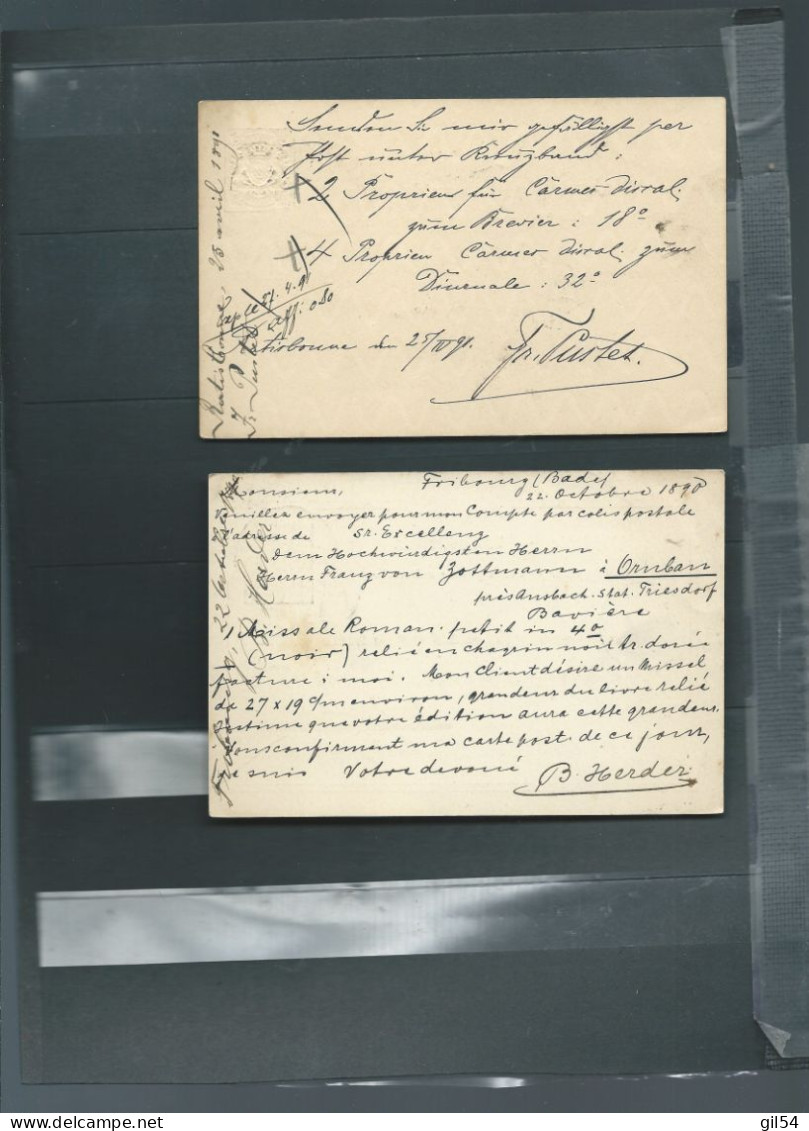 Senden Sie mir gefälligst per
Post unter Kreuzband:
+ 2 Proprien für Carmel discal.
zum Brevier: 18°
+ 4 Proprien Carmel discal. zum
Diurnale: 32°
Ratisbonne den 25/IV 91.
Fr. Pustet.
Ratisbonne, 25 avril 1891
Fr. Pustet
Fribourg (Bade)
Monsieur,
22. Octobre 1890
Veuillez envoyer pour mon Compte par colis postale
à l'adresse de Sr. Excellenz
Dem Hochwürdigsten Herrn
Herrn Franz von Zottmann à Ornbau
près Ansbach. Stat. Triesdorf
Bavière
1 Missale Roman. petit in 4o
(noir) relié en chagrin noir tr. dorée
facture: moi. Mon Client désire un Missel
de 27 x 19 c/m environ, grandeur du livre relié
j'estime que votre édition aura cette grandeur.
Vous confirment ma carte post. de ce jour,
je suis Votre devoué B. Herder.
gil54